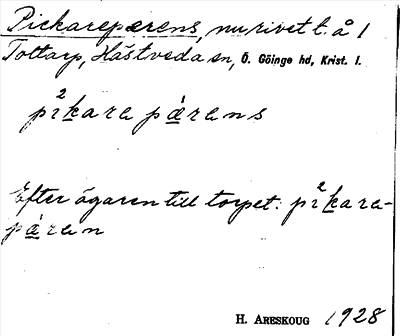 Pickarepærens, nu rivet t. å 1
Tottarp, Hästveda sn, Ö. Göinge hd, Krist. l.
pi²kara pǽrans
Efter ägaren till torpet: pi²kara-
pǽran
H. ARESKOUG 1928